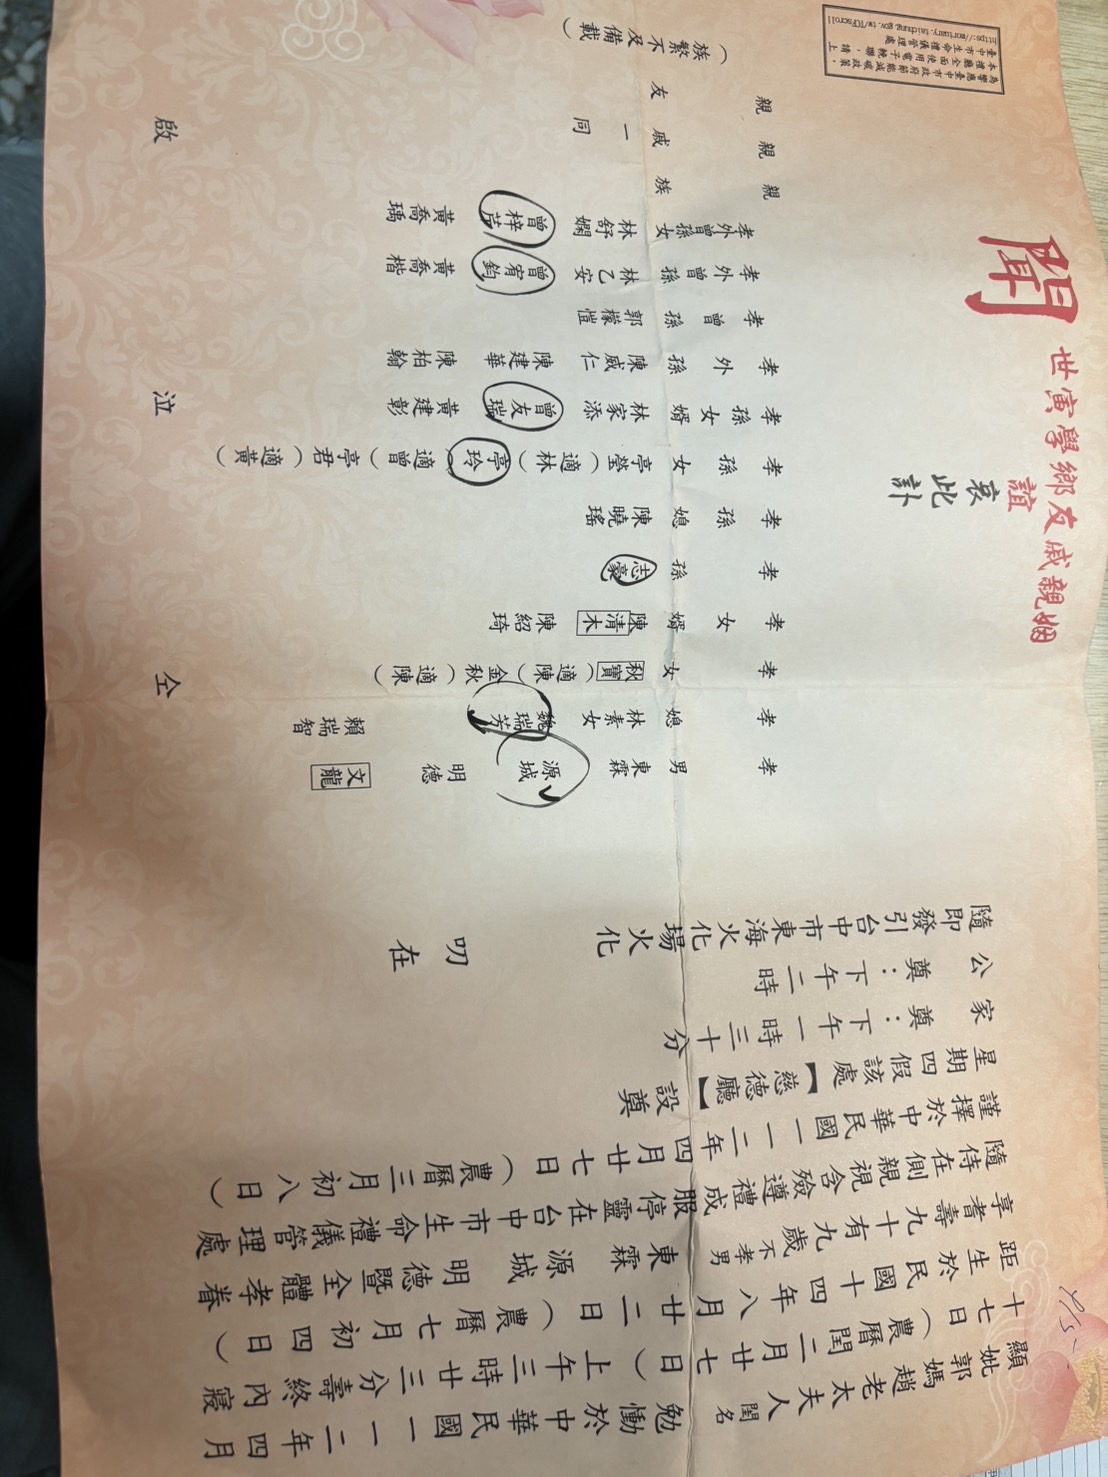 顯妣郭媽趙老太夫人閨名勉慟於中華民國一一二年四月
十七日（農曆閏二月廿七日）上午三時廿三分壽終內寢
距生於民國十四年八月廿二日（農曆七月初四日）
享耆壽九十有九歲不孝男東霖 源城 明德暨全體孝眷
隨侍在側親視含殮遵禮成服停靈在台中市生命禮儀管理處
謹擇於中華民國一一二年四月廿七日（農曆三月初八日）
星期四假該處【慈德廳】設奠
家奠：下午一時三十分
公奠：下午二時
隨即發引台中市東海火化場火化
叨在
姻親戚友鄉學寅世誼
哀此訃
聞
孝男 東霖 源城 明德 文龍
孝媳 林素女 魏瑞芳 賴瑞智
孝女 秋寶（適陳）金秋（適陳）
孝女婿 陳清木 陳紹琦
孝孫 志豪
孝孫媳 陳曉瑤
孝孫女 亭瑩（適林）亭玲（適曾）亭君（適黃）
孝孫女婿 林家添 曾友瑞 黃建彰
孝外孫 陳威仁 陳建華 陳柏翰
孝曾孫 郭檬愷
孝外曾孫 林乙安 曾宥鈞 黃喬楷
孝外曾孫女 林舒嫻 曾梓芹 黃喬瑀
親族
親戚一同
親友
（族繁不及備載）
仝 泣 啟
為響應臺中市政府節能減碳政策，
本禮廳全面使用電子輓聯，請上
臺中市生命禮儀管理處